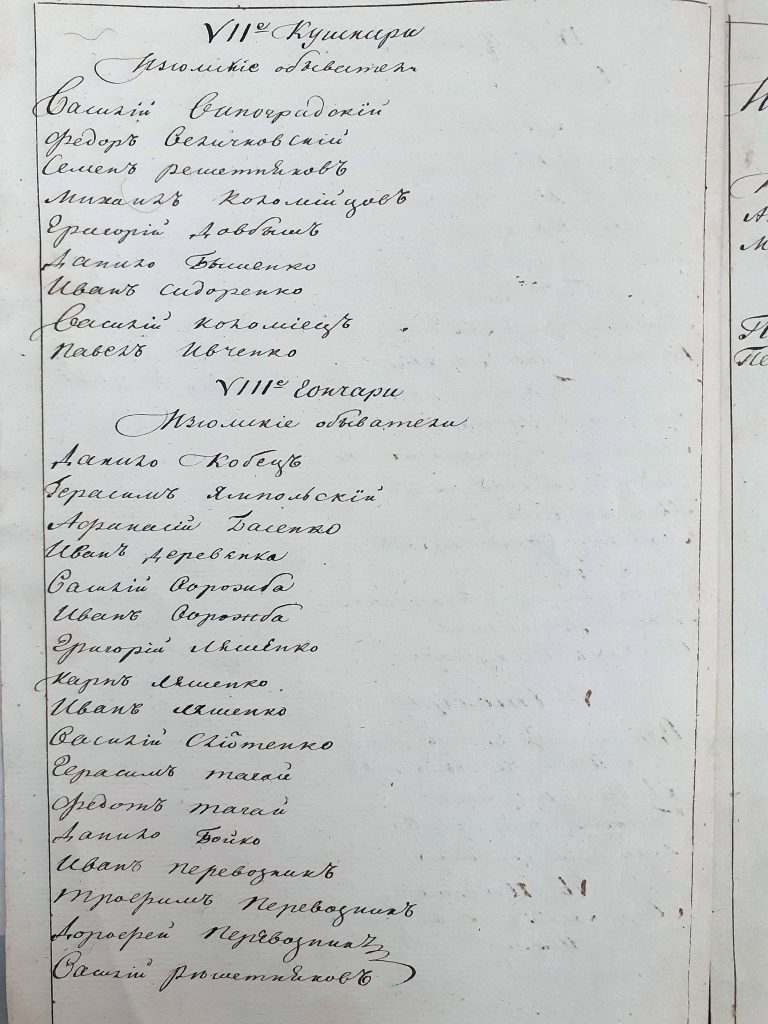 VIIе Кушнири
Изюмскіе обыватели
Василій Виноградскій
Федоръ Величковскій
Семенъ Решетняковъ
Михаилъ Коломійцовъ
Григорій Довбышъ
Данило
Иванъ Сидоренко
Василій Коломіецъ
Павелъ Ивченко
VIIIе Гончари
Изюмскіе обыватели
Данило Кобецъ
Герасимъ Ямпольскій
Афанасій Басенко
Иванъ Деревянка
Василій Ворожба
Иванъ Ворожба
Григорій Ляшенко
Карпъ Ляшенко
Иванъ Ляшенко
Василій
Герасимъ Тагай
Федотъ Тагай
Данило Бойко
Иванъ Перевозникъ
Трофимъ Перевозникъ
Дорофей Перевозникъ
Василій Решетняковъ